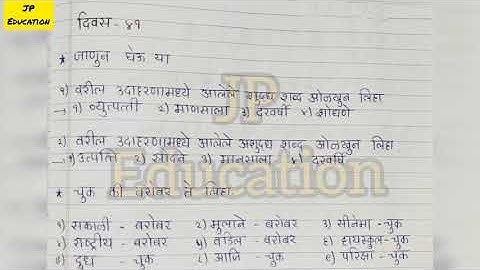 JP
EDUCATION
दिवस - ४१
★ जाणून घेऊ या
१) वरील उदाहरणामध्ये आलेले शुध्द शब्द ओळखून लिहा
→ १) व्युत्पत्ती २) माणसाला ३) दरवर्षी ४) शोधणे
२) वरील उदाहरणामध्ये आलेले अशुद्ध शब्द ओळखून लिहा
→ १) उत्पत्ति २) सोदने ३) मानसाला ४) दरवर्षि
★ चुक की बरोबर ते लिहा.
१) सकाळी - बरोबर २) मुलाने - बरोबर ३) सीनेमा - चुक
४) राष्ट्रीय - बरोबर ५) वडिल - बरोबर ६) हायस्कुल - चुक
७) दुध - चुक ८) आजि - चुक ९) परिक्षा - चुक
JP
Education